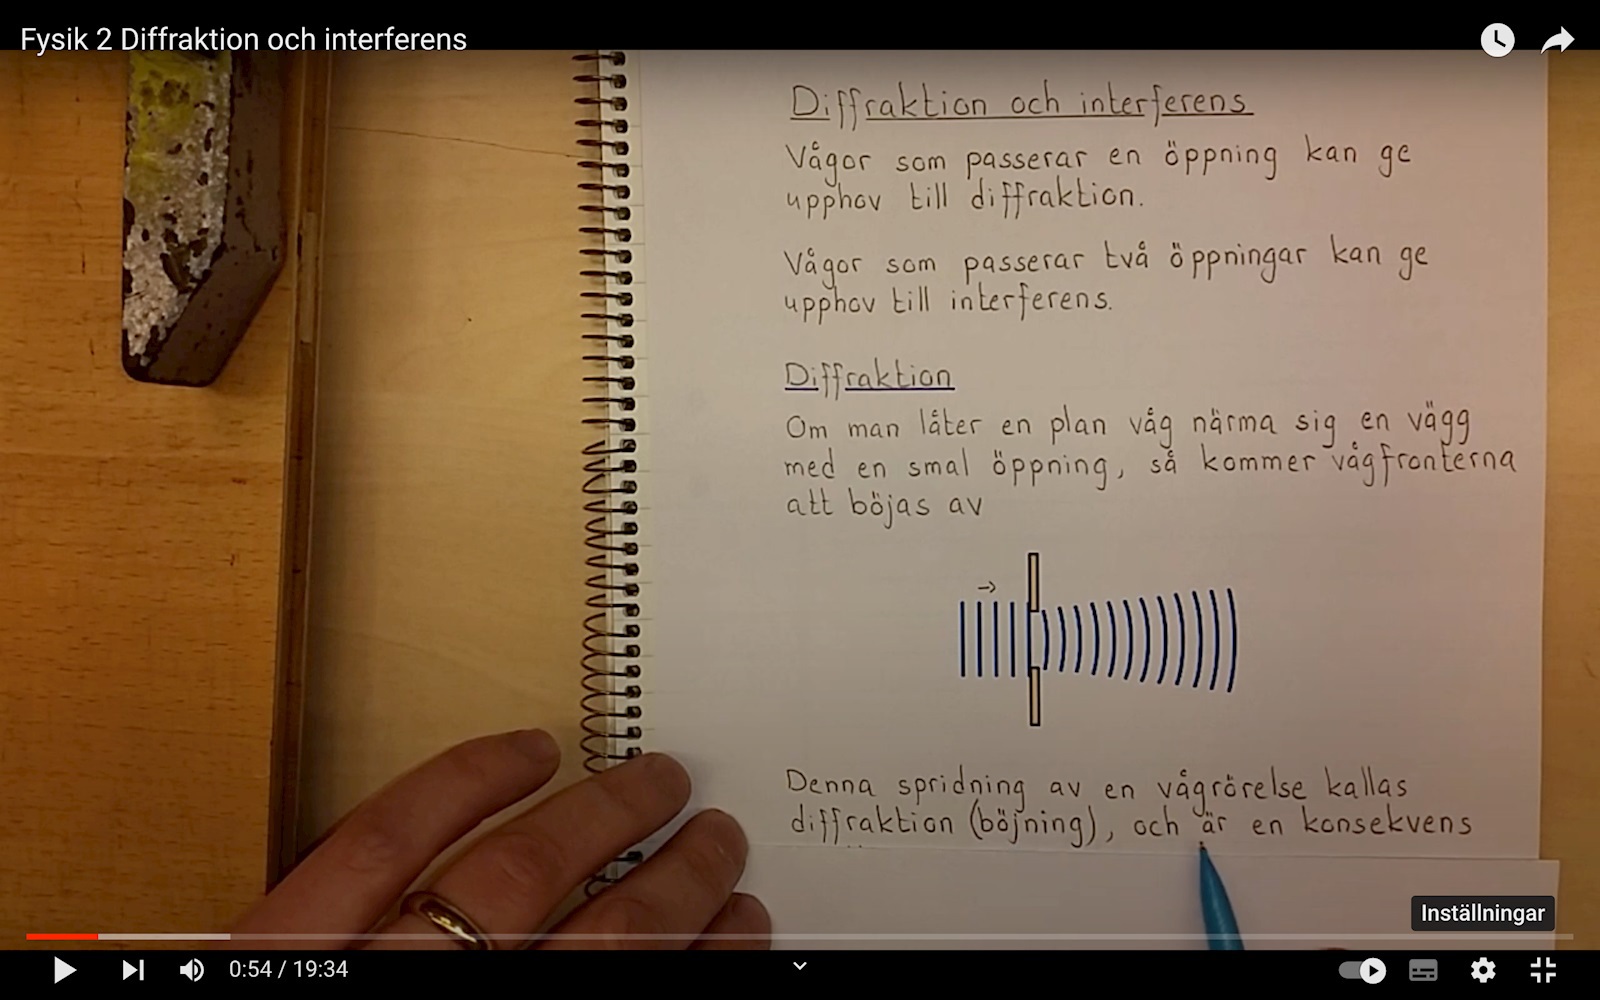 Fysik 2 Diffraktion och interferens
Diffraktion och interferens
Vågor som passerar en öppning kan ge
upphov till diffraktion.
Vågor som passerar två öppningar kan ge
upphov till interferens.
Diffraktion
Om man låter en plan våg närma sig en vägg
med en smal öppning, så kommer vågfronterna
att böjas av
Denna spridning av en vågrörelse kallas
diffraktion (böjning), och är en konsekvens
Inställningar
0:54 / 19:34